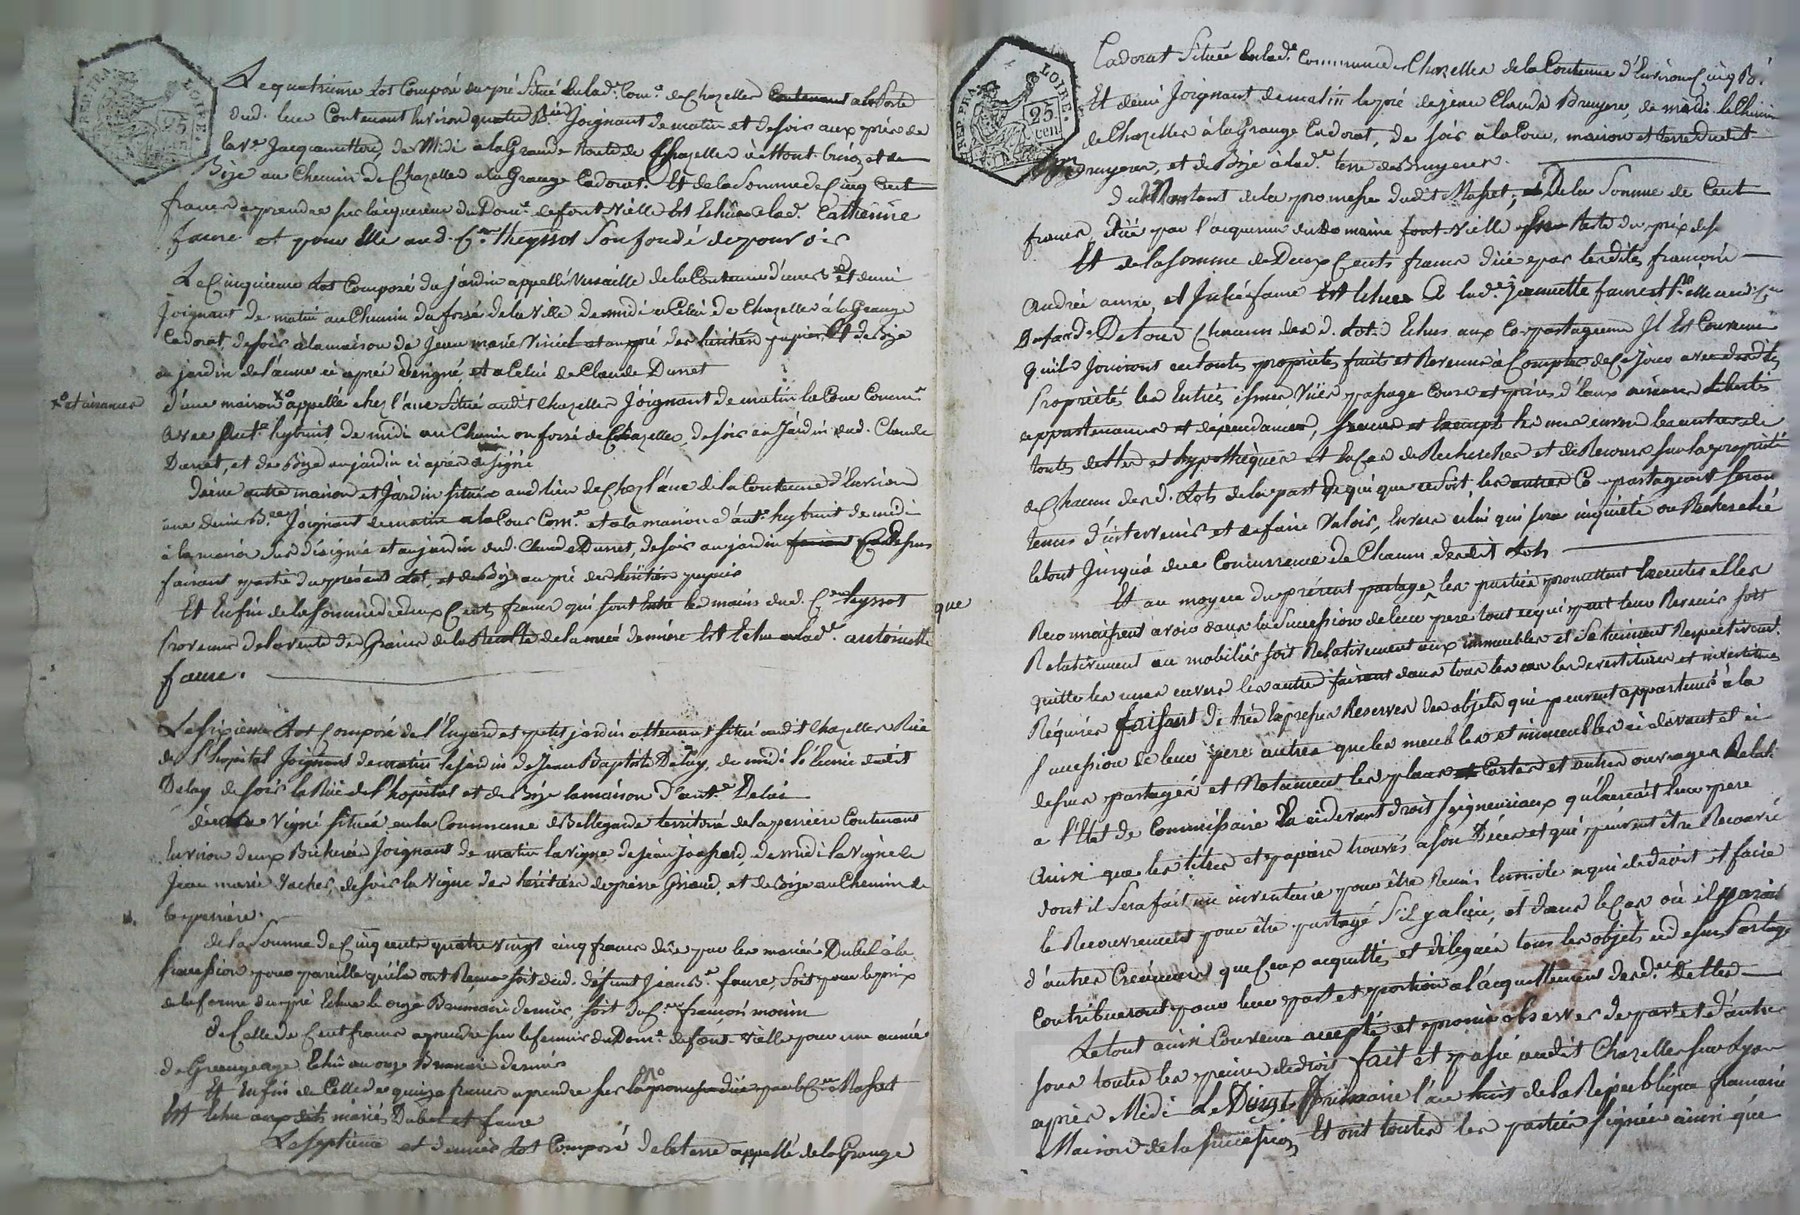 REP. FRA. LOIRE. 25 cen
Le quatrieme Lot Composé du pré Situé en lad.e Com.e de Chazelles Contenant a la Porte
dud. lieu Contenant Environ quatre Bic.es Joignant de matin et de soir aux prés de
la V.e Jacquemettond, de Midi a la Grande Route de Chazelles à Mont-brison et de
Bize au Chemin de Chazelles a la Grange Cadorat. Et de la Somme de Cinq Cent
francs a prendre sur l'acquereur du Dom.e de font-vielle Est Echû a lad.e Catherine
faure et pour Elle aud. C.en theyssot Son fondé de pouvoir
Le Cinquieme Lot Composé du Jardin appellé Versaille de la Contenue d'une B.ée et demi
Joignant de matin au Chemin du fossé de la Ville de midi a Celui de Chazelles à la Grange
Cadorat de soir a la maison de Jean marie Viricel et au pré des heritiers pupier Et de Bize
au jardin de l'aune ci après désigné et a Celui de Claude Durret
x.o et aisances
d'une maison x.o appellé chez l'aue Situé audit Chazelles Joignant de matin la Cour Comm.e
avec Ant.e hybruit de midi au Chemin ou fossé de Chazelles, de soir au Jardin dud. Claude
Durret, et de Bize au jardin ci après designé
d'une autre maison et Jardin situés aud. lieu de Chez l'aue de la Contenue d'Environ
une demie B.ée Joignant de matin a la Cour Com.e et a la maison d'ant.e hybruit de midi
à la maison sus désignée et au jardin dud. Claude Durret, de soir au jardin Ci dessus
faisant partie du présent Lot, et de Bize au pré des héritiers pupier
Et Enfin de la Somme de deux Cent francs qui sont Entre les mains dud. C.en teyssot
Provenus de la vente des Grains de la Recolte de l'année derniere Est Echu a lad.e antoinette
faure.
Le sixieme Lot Composé de l'Engard et petit jardin attenant situé audit Chazelles Rüe
de l'hopital Joignant de matin le jardin de Jean Baptiste Delay, de midi l'Ecurie dudit
Delay de soir la Rüe de l'hopital et de Bize la maison d'ant.e Delai
d'une Vigne située en la Commune de Bellegarde territoire de la perrière Contenant
Environ deux Bicherées Joignant de matin la vigne de Jean Jossard de midi la Vigne de
Jean marie Vacher, de soir la vigne des héritiers de pierre Giraud, et de Bize au Chemin de
la perrière.
de la Somme de Cinq cents quatre vingt cinq francs düe par les mariés Dubel à la
succession pour pareille qu'ils ont Recue soit dud. défunt Jean B.te faure, Soit pour le prix
de la ferme du pré Echue le onze Brumaire dernier, soit du C.en françois morin
de Celle de Cent francs a prendre sur le fermier du Dom.e de font-vielle pour une année
de Grangeage Echû au onze Brumaire dernier
Et Enfin de Celle de quinze francs a prendre sur la promesse düe par le C.en Maset
Est Echu auxdits mariés Dubel et faure
Le septieme et dernier Lot Composé de la terre appellé de la Grange
REP. FRA. LOIRE. 25 cen
Cadorat Située en lad.e Commune de Chazelles de la Contenue d'Environ Cinq Bi.
Et demi Joignant de matin le pré de Jean Claude Bruyere, de midi le Chemin
de Chazelles à la Grange Cadorat, de soir a la Cour, maison et terre dudit
Bruyeres, et de Bize a lad.e terre de Bruyeres.
du Montant de la promesse dudit Maset, De la Somme de Cent
francs, düe par l'acquereur du domaine font-vielle Reste du prix de
Et de la Somme de Deux Cents francs düe par lesdits françois
André aurre, et Julie faure Est Echu à lad.e jeannette faure et p.r elle aud. C.en
Dufand. De tous Chacun des d. Lots Echus aux Copartageurs Il Est Convenu
qu'ils Jouiront en toute propriété fruits et Revenus à Compter de Ce jour avec desdites
Propriétés les Entrées issues, Vües passage Cours et prises d'Eaux aisances Libertés
appartenances et dépendances, francs et Exempts les uns envers les autres de
toutes dettes et hypothèques et En Cas de Recherches et de Recours sur la propriété
de Chacun des d. Lots de la part de qui que ce soit les autres Co-partageant seront
tenus d'intervenir et de faire Valoir, Envers celui qui sera inquiété ou Recherché
le tout Jusqu'à due Concurrence de Chacun desdit Lots
Et au moyen du présent partage, les parties promettent Executer elles
que
Reconnaissent avoir dans la Succession de leur pere tout ce qui peut leur Revenir soit
Relativement au mobilier soit Relativement aux immeubles et Se tiennent Respectivement
quitte les unes envers les autres faisant dans tous les cas les devestitures et investitures
Réquises faisant de très Expresses Reserves des objets qui peuvent appartenir à la
succession de leur pere autres que les meubles et immeubles ci devant et ci
dessus partagés et Notament les plans Cartes et autres ouvrages Relatif
a l'Etat de Commissaire à ci devant droit Seigneuriaux qu'Exercait leur pere
Ainsi que les titres et papiers trouvés a son Décès et qui peuvent être Recouvré
dont il Sera fait un inventaire pour être Remis Ensuite a qui de droit et faire
le Recouvrement pour être partagé S'il y a lieu, et dans le Cas où il paroit
d'autres Créanciers que Ceux acquittés et délégués tous les objets ci dessus Partagés
Contribueront pour leur part et portion a l'acquittement desd.es Dettes
Le tout ainsi Convenu accepté et promis observer de part et d'autre
sous toutes les peines de droit fait et passé audit Chazelles sur Lyon
après Midi Le Vingt Frimaire l'an huit de la République francaise
Maison de la succession Et ont toutes les parties signées ainsi que